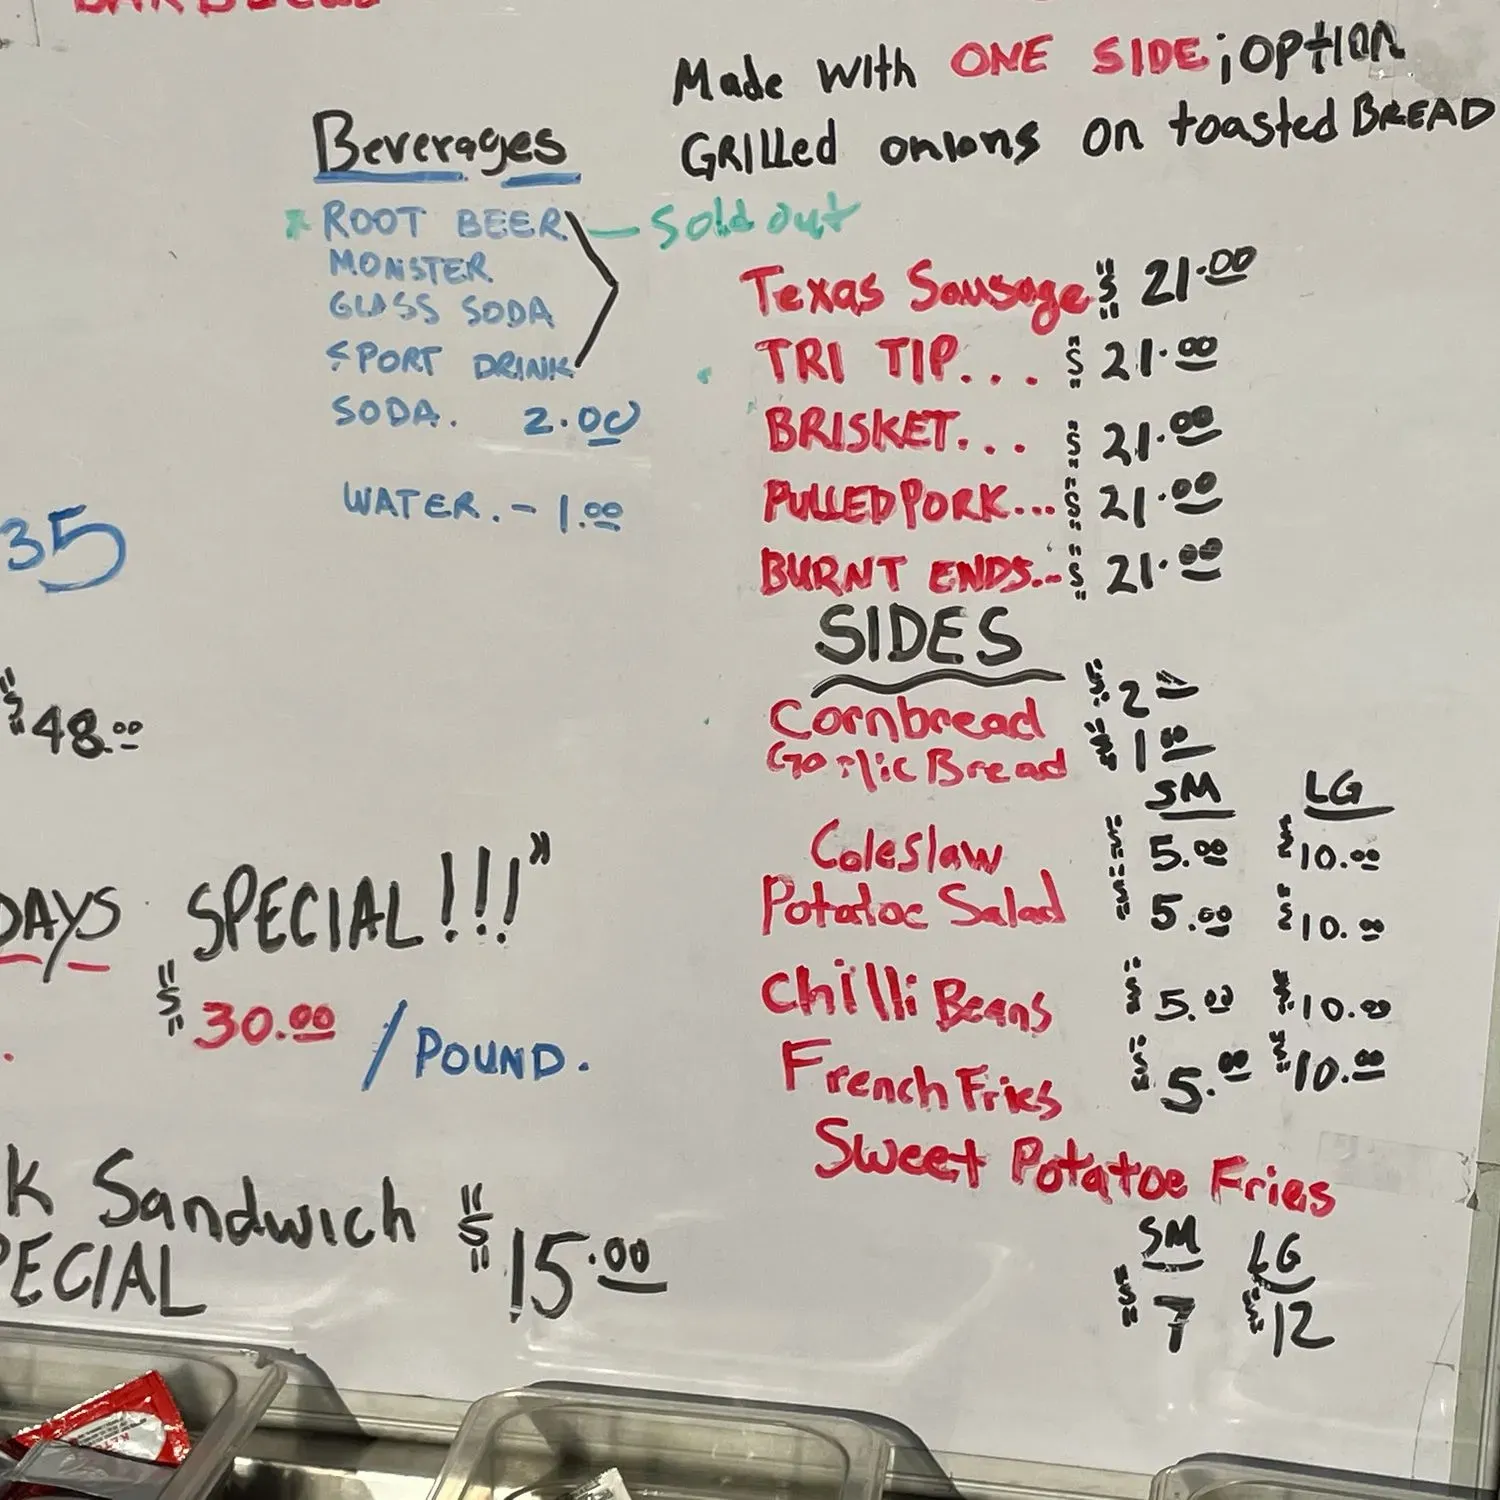 Made with ONE SIDE; OPtION
GRILLed onions on toasted BREAD
Beverages
* ROOT BEER — Sold out
MONSTER
GLASS SODA
SPORT DRINK
SODA. 2.00
WATER. - 1.00
Texas Sausage "$" 21.00
TRI TIP... "$" 21.00
BRISKET... "$" 21.00
PULLED PORK... "$" 21.00
BURNT ENDS... "$" 21.00
SIDES
Cornbread "$" 2
Garlic Bread "$" 1.00
SM LG
Coleslaw "$" 5.00 "$" 10.00
Potatoe Salad "$" 5.00 "$" 10.00
Chilli Beans "$" 5.00 "$" 10.00
French Fries "$" 5.00 "$" 10.00
Sweet Potatoe Fries
SM LG
"$" 7 "$" 12
35
"$" 48.00
DAYS SPECIAL!!!"
"$" 30.00 / POUND.
K Sandwich "$" 15.00
PECIAL